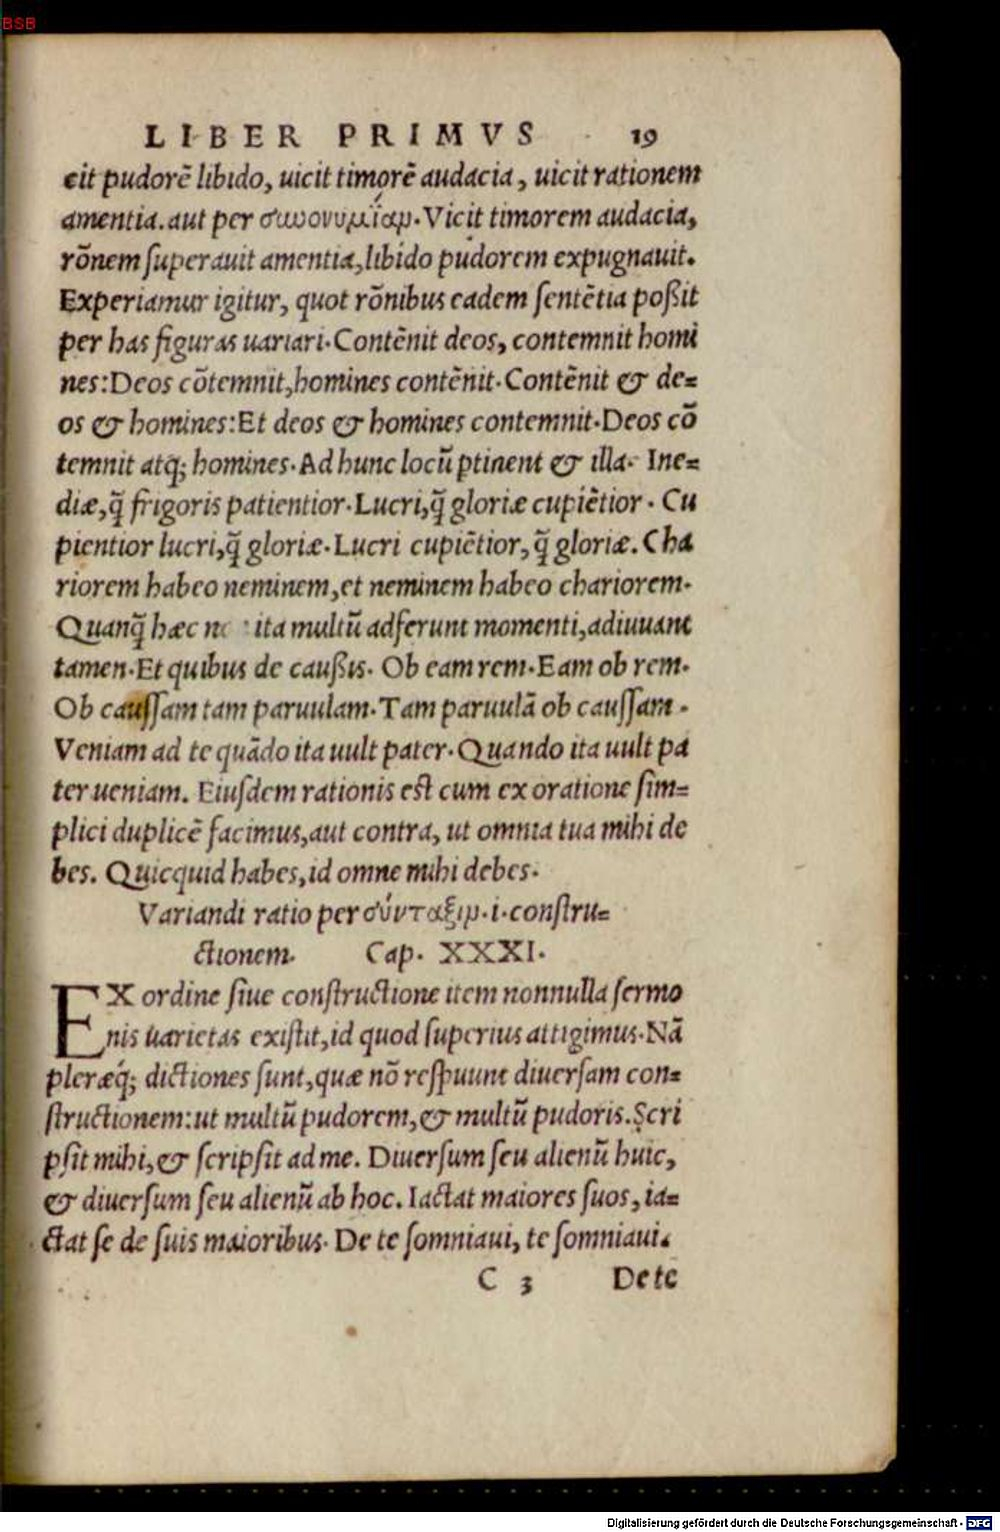 BSB
LIBER PRIMVS 19
cit pudorē libido, uicit timorē audacia, uicit rationem
amentia. aut per συνωνυμίαμ. Vicit timorem audacia,
rōnem ſuperauit amentia, libido pudorem expugnauit.
Experiamur igitur, quot rōnibus eadem ſentētia poßit
per has figuras uariari. Contēnit deos, contemnit homi
nes: Deos cōtemnit, homines contēnit. Contēnit & de=
os & homines: Et deos & homines contemnit. Deos cō
temnit atq; homines. Ad hunc locū ptinent & illa. Ine=
diæ, q̃ frigoris patientior. Lucri, q̃ gloriæ cupiētior. Cu
pientior lucri, q̃ gloriæ. Lucri cupiētior, q̃ gloriæ. Cha
riorem habeo neminem, et neminem habeo chariorem.
Quanq̃ hæc ita multū adferunt momenti, adiuuant
tamen. Et quibus de caußis. Ob eam rem. Eam ob rem.
Ob cauſſam tam paruulam. Tam paruulā ob cauſſam.
Veniam ad te quādo ita uult pater. Quando ita uult pa
ter ueniam. Eiuſdem rationis eſt cum ex oratione ſim=
plici duplicē facimus, aut contra, ut omnia tua mihi de
bes. Quicquid habes, id omne mihi debes.
Variandi ratio per σύνταξιμ. i. conſtru=
ctionem. Cap. XXXI.
EX ordine ſiue conſtructione item nonnulla ſermo
nis uarietas exiſtit, id quod ſuperius attigimus. Nā
pleræq́; dictiones ſunt, quæ nō reſpuunt diuerſam con=
ſtructionem: ut multū pudorem, & multū pudoris. Scri
pſit mihi, & ſcripſit ad me. Diuerſum ſeu alienū huic,
& diuerſum ſeu alienū ab hoc. Iactat maiores ſuos, ia=
ctat ſe de ſuis maioribus. De te ſomniaui, te ſomniaui.
C 3 De te
Digitalisierung gefördert durch die Deutsche Forschungsgemeinschaft - DFG